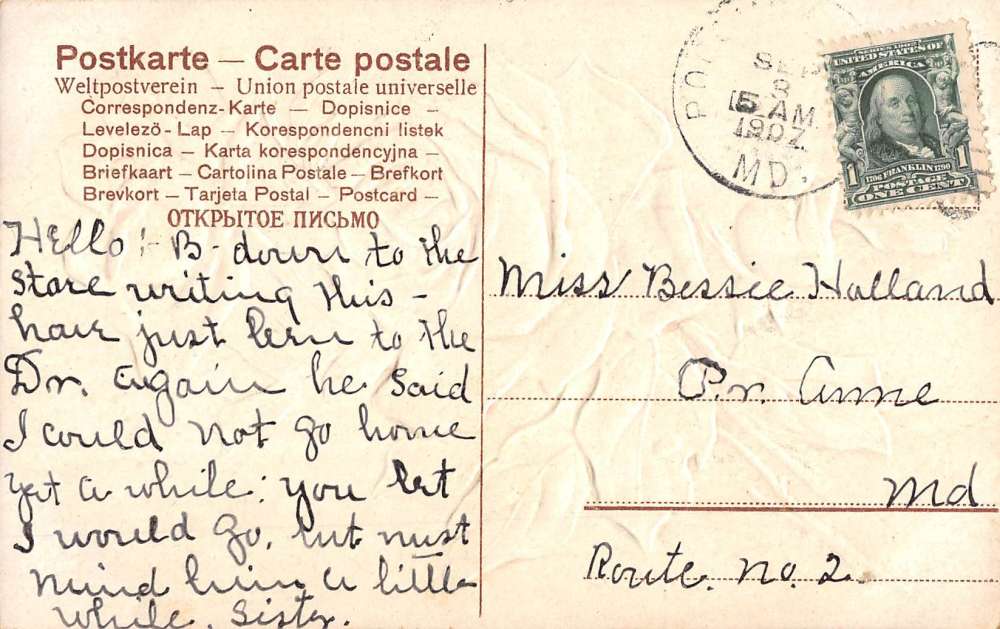 Postkarte — Carte postale
Weltpostverein — Union postale universelle
Correspondenz-Karte — Dopisnice —
Levelező-Lap — Korespondencni listek
Dopisnica — Karta korespondencyjna —
Briefkaart — Cartolina Postale — Brefkort
Brevkort — Tarjeta Postal — Postcard —
ОТКРЫТОЕ ПИСЬМО
Hello! B- down to the
store writing this -
have just been to the
Dr. again he said
I could not go home
yet a while: you bet
I would go, but must
mind him a little
while. Sister.
SEP
8
5 AM
1907
MD.
SERIES 1902
UNITED STATES OF
AMERICA
1706 FRANKLIN 1790
1 POSTAGE 1
ONE CENT
Miss Bessie Holland
Pr. Anne
Md
Route. No. 2